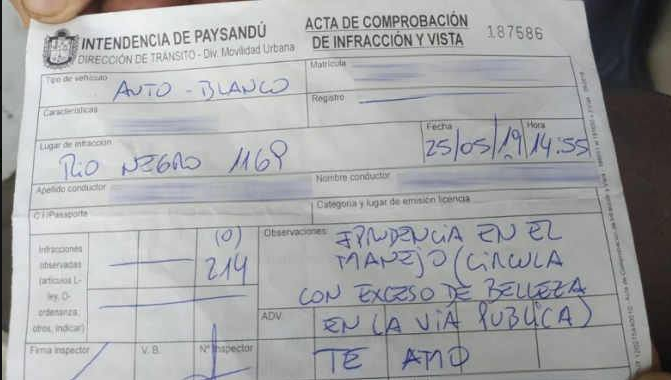 INTENDENCIA DE PAYSANDÚ
DIRECCIÓN DE TRÁNSITO - Div. Movilidad Urbana
ACTA DE COMPROBACIÓN
DE INFRACCIÓN Y VISTA
187586
Tipo de vehículo
AUTO - BLANCO
Matrícula
Características
Registro
Lugar de infracción
RIO NEGRO 1169
Fecha
25/05/19
Hora
14:55
Apellido conductor
Nombre conductor
C.I/Pasaporte
Categoría y lugar de emisión licencia
Infracciones
observadas
(artículos L-
ley, O-
ordenanza,
otros, indicar)
(O)
214
Observaciones
IPRUDENCIA EN EL
MANEJO (CIRCULA
CON EXCESO DE BELLEZA
ADV.
EN LA VIA PUBLICA)
Firma inspector
V. B.
Nº Inspector
TE AMO